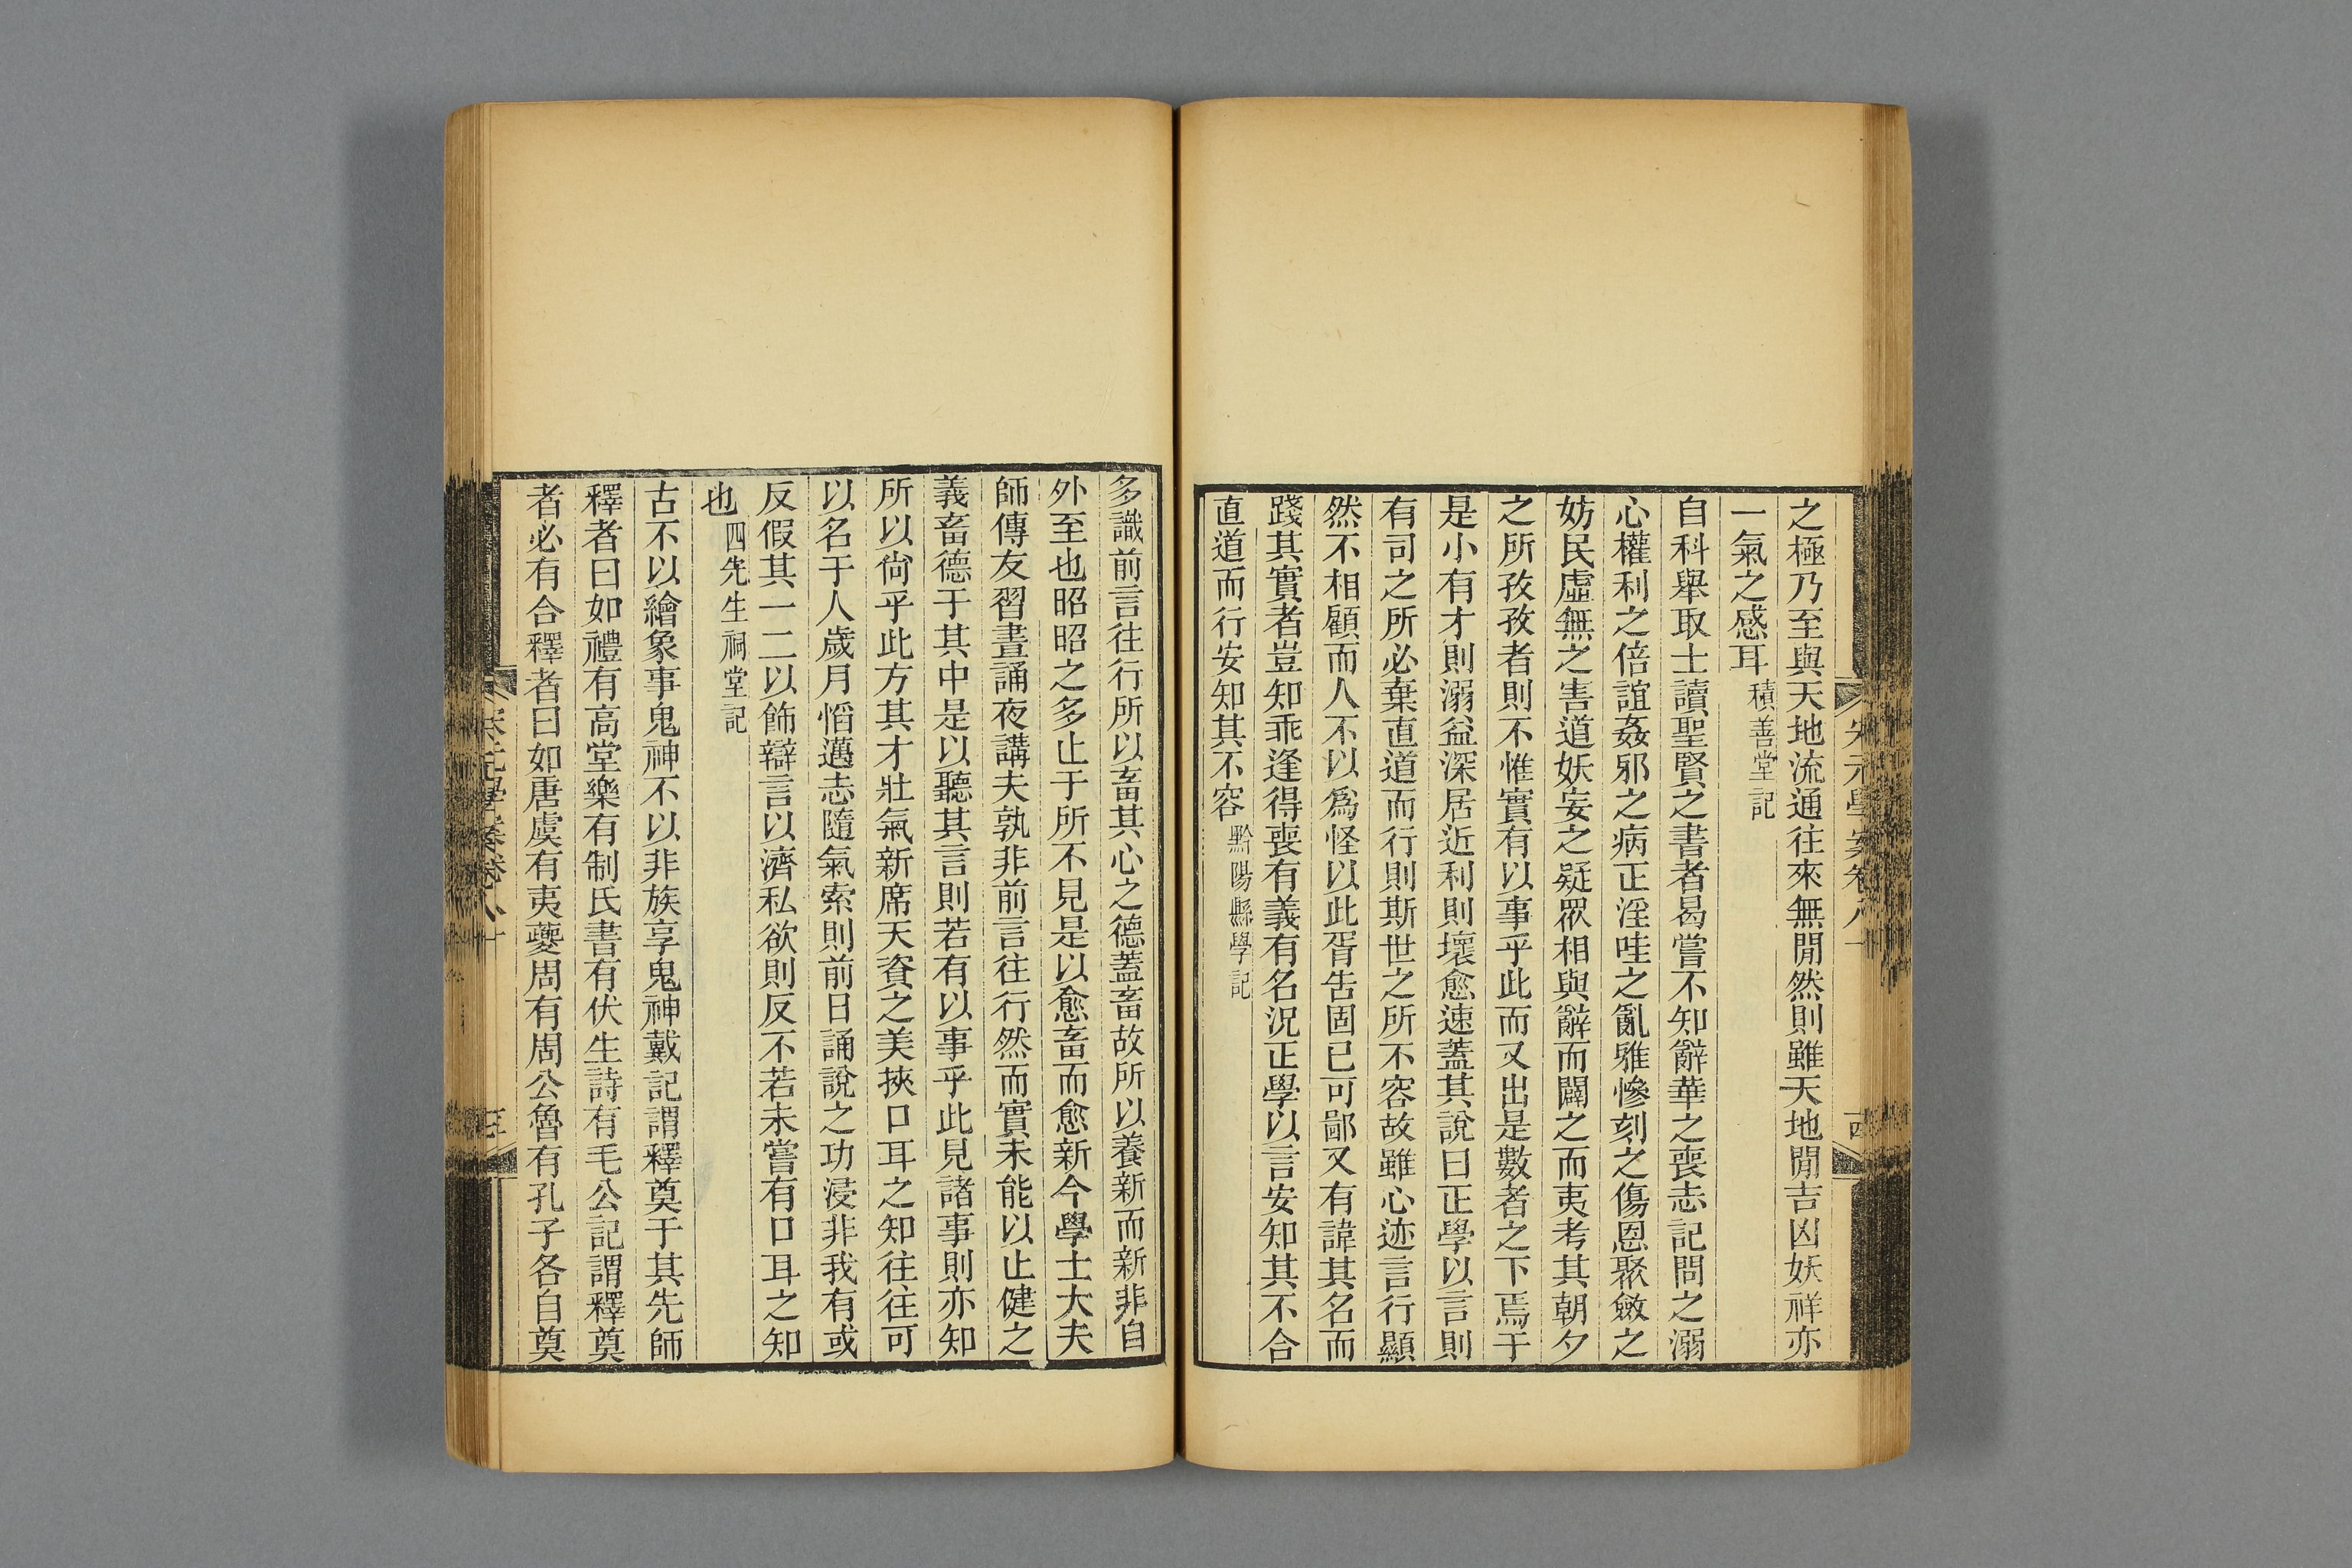 之極乃至與天地流通往來無閒然則雖天地閒吉凶妖祥亦
一氣之感耳積善堂記
自科舉取士讀聖賢之書者曷嘗不知辭華之喪志記問之溺
心權利之倍誼姦邪之病正淫哇之亂雅慘刻之傷恩聚斂之
妨民虛無之害道妖妄之疑眾相與辭而闢之而夷考其朝夕
之所孜孜者則不惟實有以事乎此而又出是數者之下焉于
是小有才則溺益深居近利則壞愈速蓋其說曰正學以言則
有司之所必棄直道而行則斯世之所不容故雖心迹言行顯
然不相顧而人不以爲怪以此胥告固已可鄙又有諱其名而
踐其實者豈知乖逢得喪有義有名況正學以言安知其不合
直道而行安知其不容黔陽縣學記
多識前言往行所以畜其心之德蓋畜故所以養新而新非自
外至也昭昭之多止于所不見是以愈畜而愈新今學士大夫
師傳友習晝誦夜講夫孰非前言往行然而實未能以止健之
義畜德于其中是以聽其言則若有以事乎此見諸事則亦知
所以尙乎此方其才壯氣新席天資之美挾口耳之知往往可
以名于人歲月慆邁志隨氣索則前日誦說之功浸非我有或
反假其一二以飾辯言以濟私欲則反不若未嘗有口耳之知
也四先生祠堂記
古不以繪象事鬼神不以非族享鬼神戴記謂釋奠于其先師
釋者曰如禮有高堂樂有制氏書有伏生詩有毛公記謂釋奠
者必有合釋者曰如唐虞有夷夔周有周公魯有孔子各自奠
宋元學案卷八十